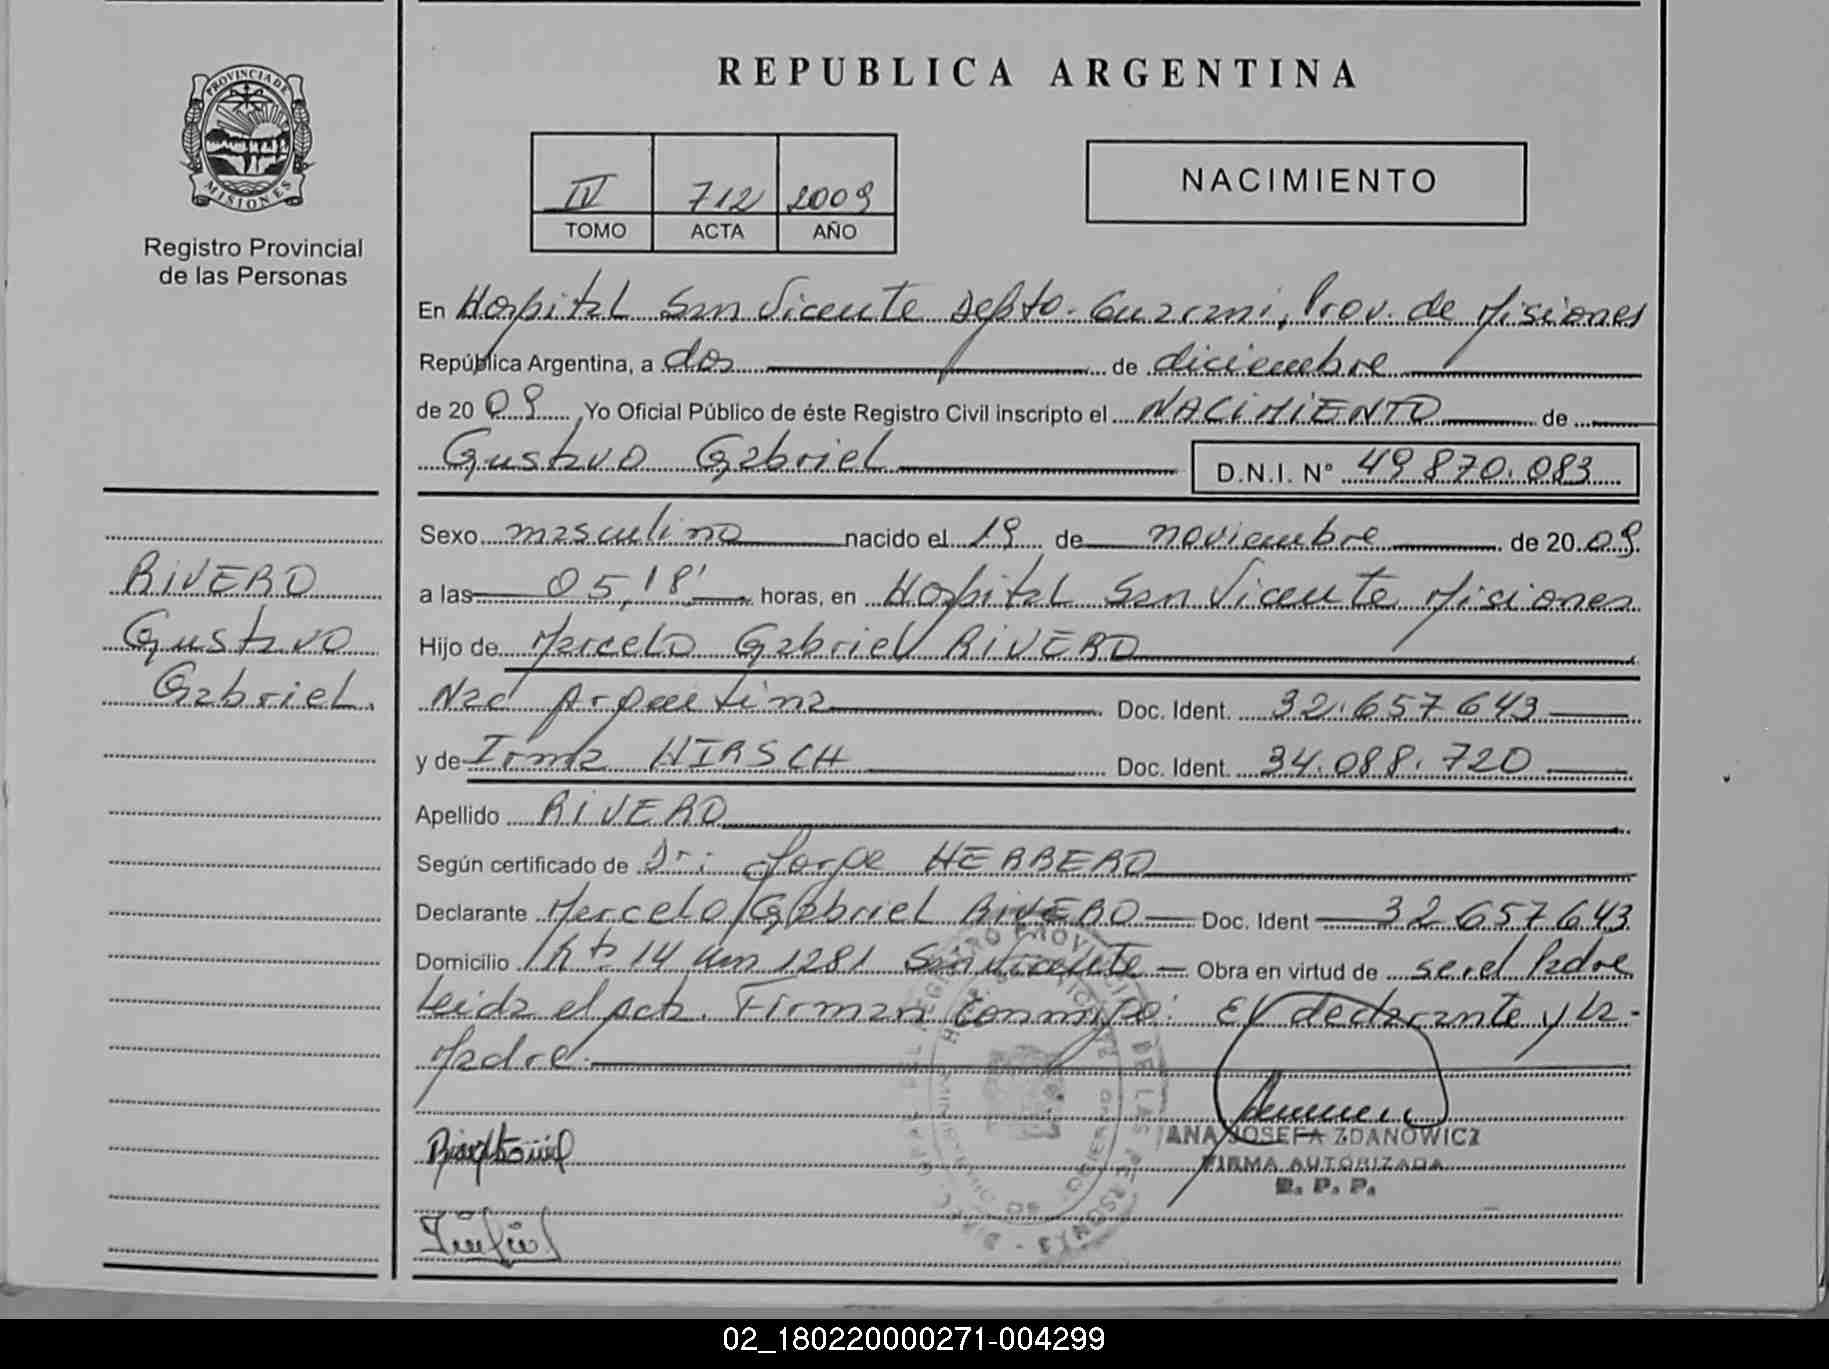 REPUBLICA ARGENTINA
PROVINCIA DE
MISIONES
Registro Provincial
de las Personas
IV 712 2009
TOMO ACTA AÑO
NACIMIENTO
En Hospital San Vicente Depto. Guarani, Prov. de Misiones
República Argentina, a dos de diciembre
de 20 09 Yo Oficial Público de éste Registro Civil inscripto el NACIMIENTO de
Gustavo Gabriel D.N.I. Nº 49.870.083
Sexo masculino nacido el 19 de noviembre de 20 09
a las 05,18' horas, en Hospital San Vicente Misiones
Hijo de Marcelo Gabriel RIVERO
Nac Argentina Doc. Ident. 32.657.643
y de Irma HIRSCH Doc. Ident. 34.088.720
Apellido RIVERO
Según certificado de Dr: Jorge HERRERO
Declarante Marcelo Gabriel RIVERO Doc. Ident 32.657.643
Domicilio 14 Km 1281 San Vicente Obra en virtud de ser el Padre
Leida el acta. Firman Conmigo: El declarante y la
Madre.
ANA JOSEFA ZDANOWICZ
FIRMA AUTORIZADA
R. P. P.
RIVERO
Gustavo
Gabriel.
02_180220000271-004299